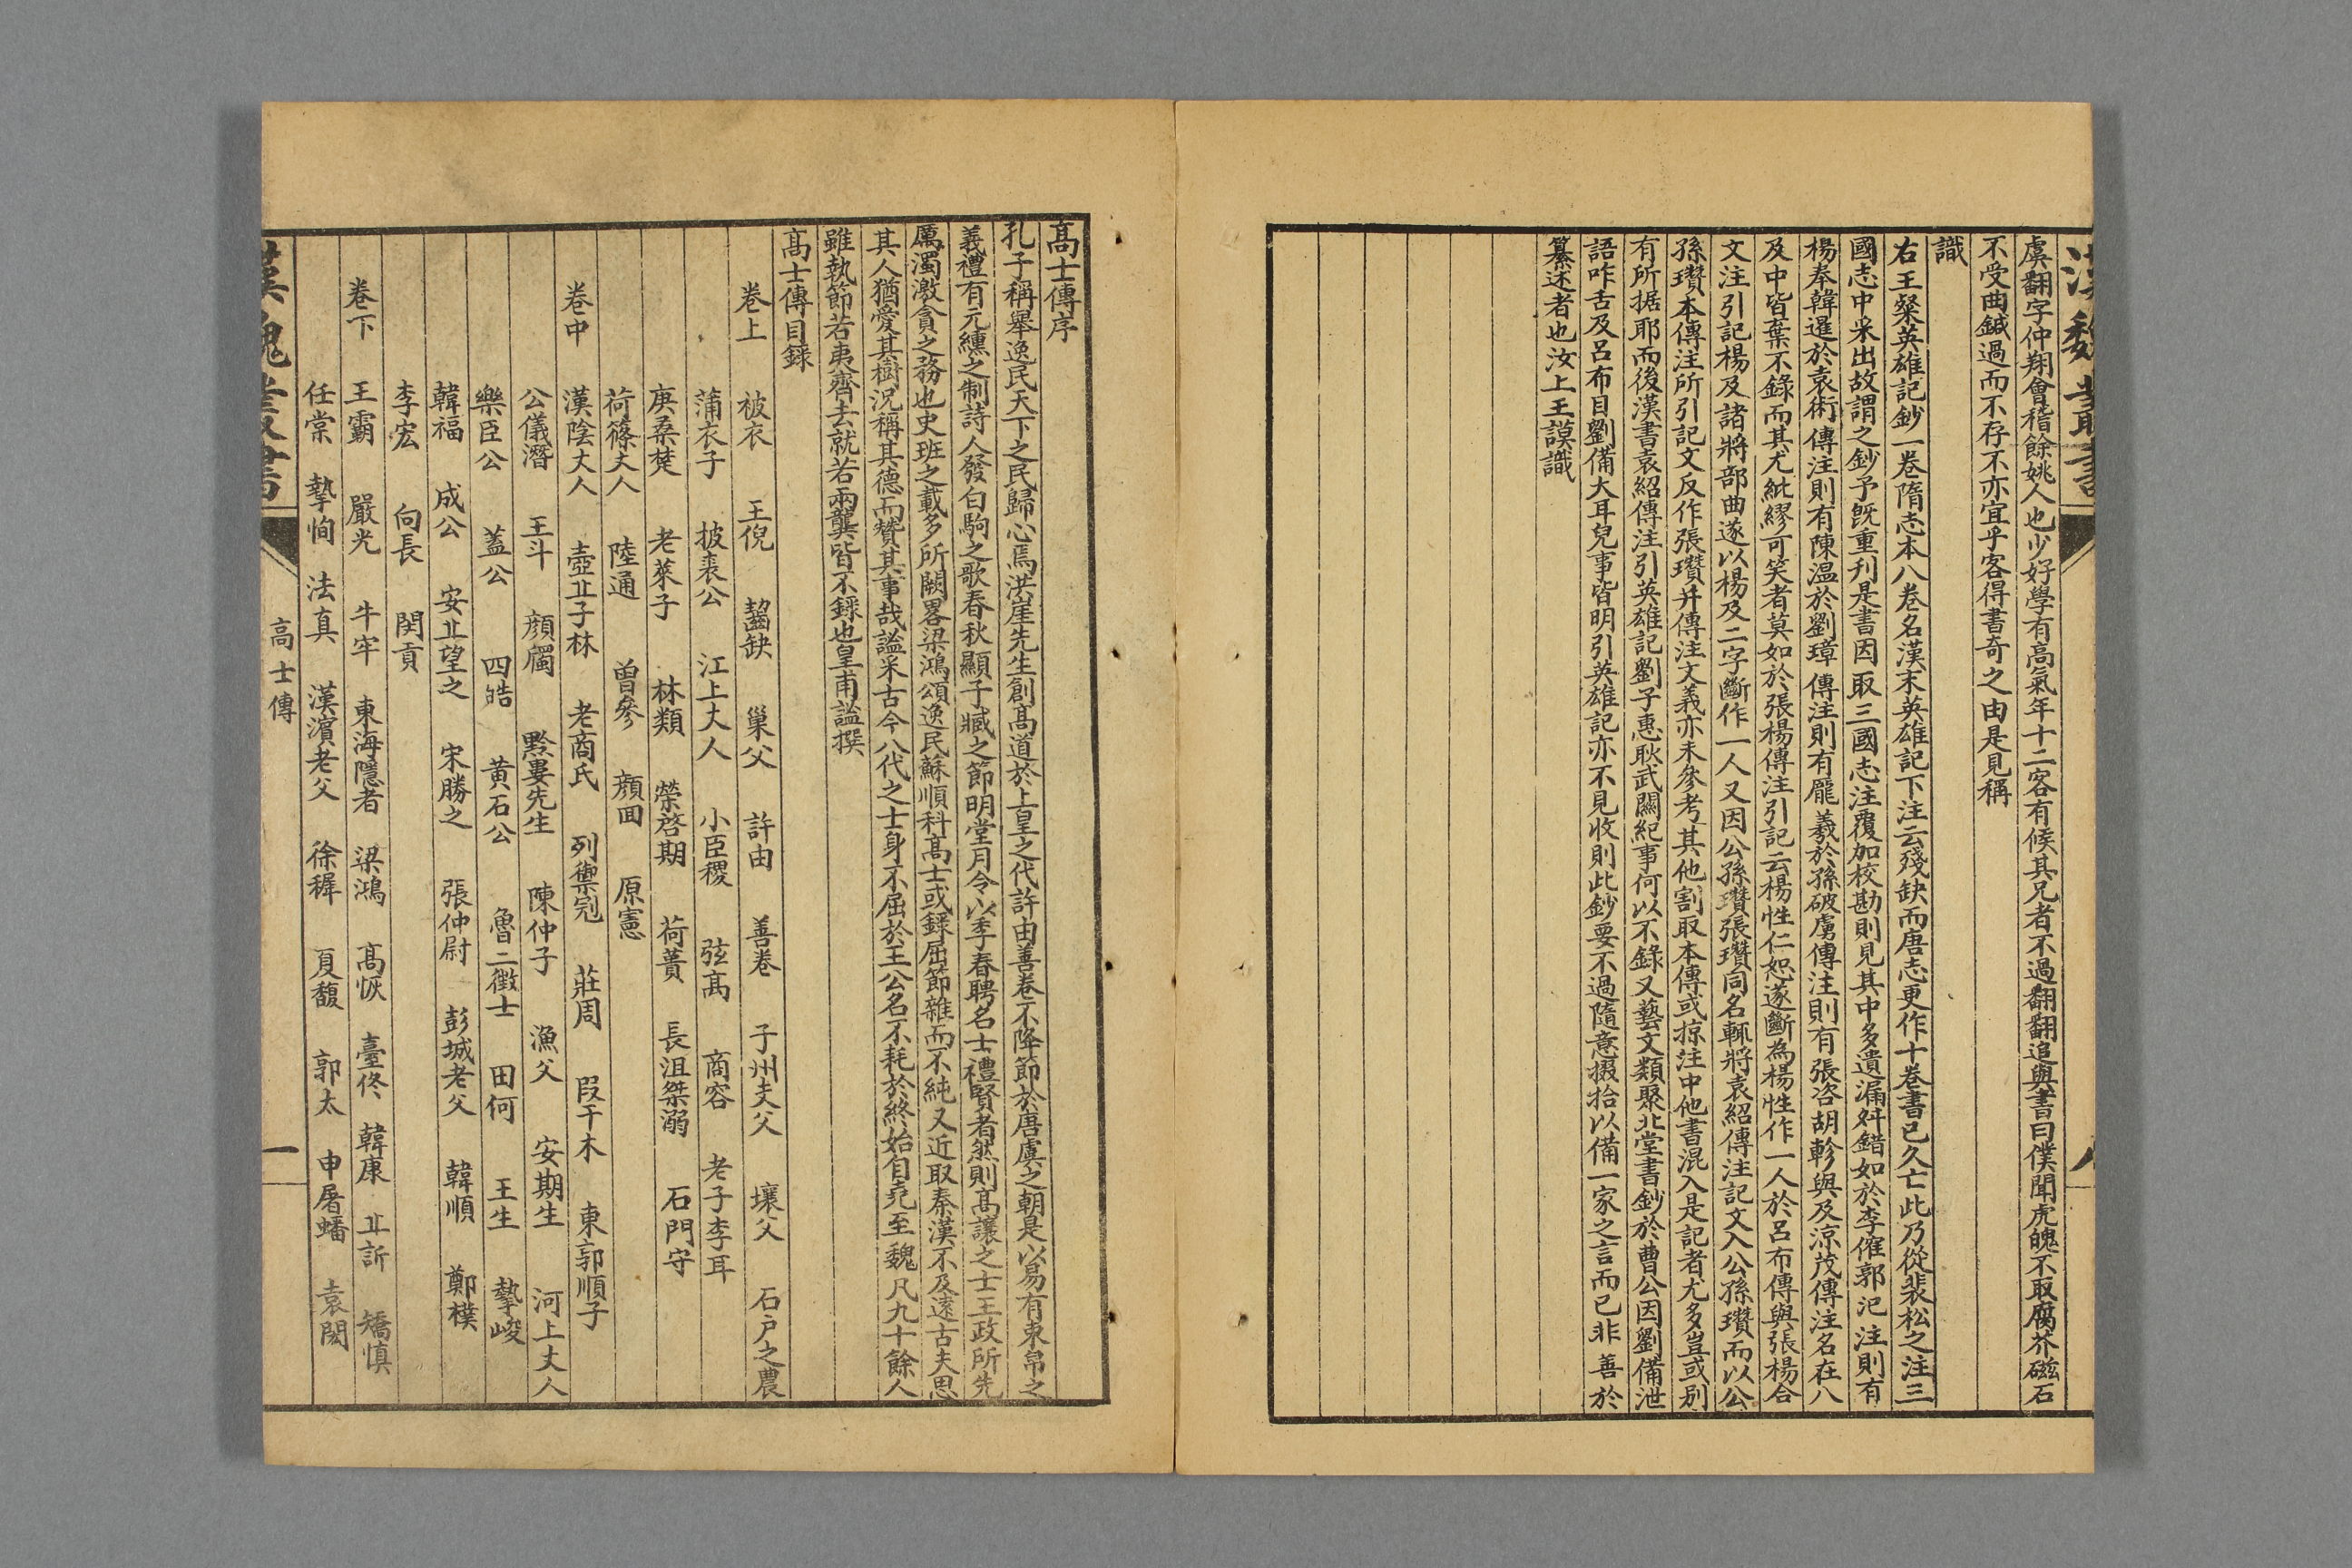 漢魏叢書
虞翻字仲翔會稽餘姚人也少好學有高氣年十二客有候其兄者不過翻翻追與書曰僕聞虎魄不取腐芥磁石
不受曲鍼過而不存不亦宜乎客得書奇之由是見稱
識
右王粲英雄記鈔一卷隋志本八卷名漢末英雄記下注云殘缺而唐志更作十卷書已久亡此乃從裴松之注三
國志中采出故謂之鈔予旣重刊是書因取三國志注覆加校勘則見其中多遺漏舛錯如於李傕郭汜注則有
楊奉韓暹於袁術傳注則有陳溫於劉璋傳注則有龐羲於孫破虜傳注則有張咨胡軫與及涼茂傳注名在八
及中皆棄不錄而其尤紕繆可笑者莫如於張楊傳注引記云楊性仁恕遂斷為楊性作一人於呂布傳與張楊合
文注引記楊及諸將部曲遂以楊及二字斷作一人又因公孫瓚張瓚同名輒將袁紹傳注記文入公孫瓚而以公
孫瓚本傳注所引記文反作張瓚并傳注文義亦未參考其他割取本傳或掠注中他書混入是記者尤多豈或別
有所据耶而後漢書袁紹傳注引英雄記劉子惠耿武闗紀事何以不錄又藝文類聚北堂書鈔於曹公因劉備泄
語咋舌及呂布目劉備大耳兒事皆明引英雄記亦不見收則此鈔要不過隨意掇拾以備一家之言而已非善於
纂述者也汝上王謨識
高士傳序
孔子稱舉逸民天下之民歸心焉洪崖先生創高道於上皇之代許由善卷不降節於唐虞之朝是以易有束帛之
義禮有元纁之制詩人發白駒之歌春秋顯子臧之節明堂月令以季春聘名士禮賢者然則高讓之士王政所先
厲濁激貪之務也史班之載多所闕畧梁鴻頌逸民蘇順科高士或錄屈節雜而不純又近取秦漢不及遠古夫思
其人猶愛其樹況稱其德而贊其事哉謐采古今八代之士身不屈於王公名不耗於終始自堯至魏凡九十餘人
雖執節若夷齊去就若兩龔皆不錄也皇甫謐撰
高士傳目錄
卷上 被衣 王倪 齧缺 巢父 許由 善卷 子州支父 壤父 石戶之農
蒲衣子 披裘公 江上丈人 小臣稷 弦高 商容 老子李耳
庚桑楚 老萊子 林類 榮啓期 荷蕢 長沮桀溺 石門守
荷篠丈人 陸通 曾參 顏回 原憲
卷中 漢陰丈人 壺丘子林 老商氏 列禦寇 莊周 段干木 東郭順子
公儀潛 王斗 顏斶 黔婁先生 陳仲子 漁父 安期生 河上丈人
樂臣公 蓋公 四皓 黃石公 魯二徵士 田何 王生 摯峻
韓福 成公 安丘望之 宋勝之 張仲尉 彭城老父 韓順 鄭樸
李宏 向長 閔貢
卷下 王霸 嚴光 牛牢 東海隱者 梁鴻 高恢 臺佟 韓康 丘訢 矯慎
任棠 摯恂 法真 漢濱老父 徐稺 夏馥 郭太 申屠蟠 袁閎
漢魏叢書 高士傳 一